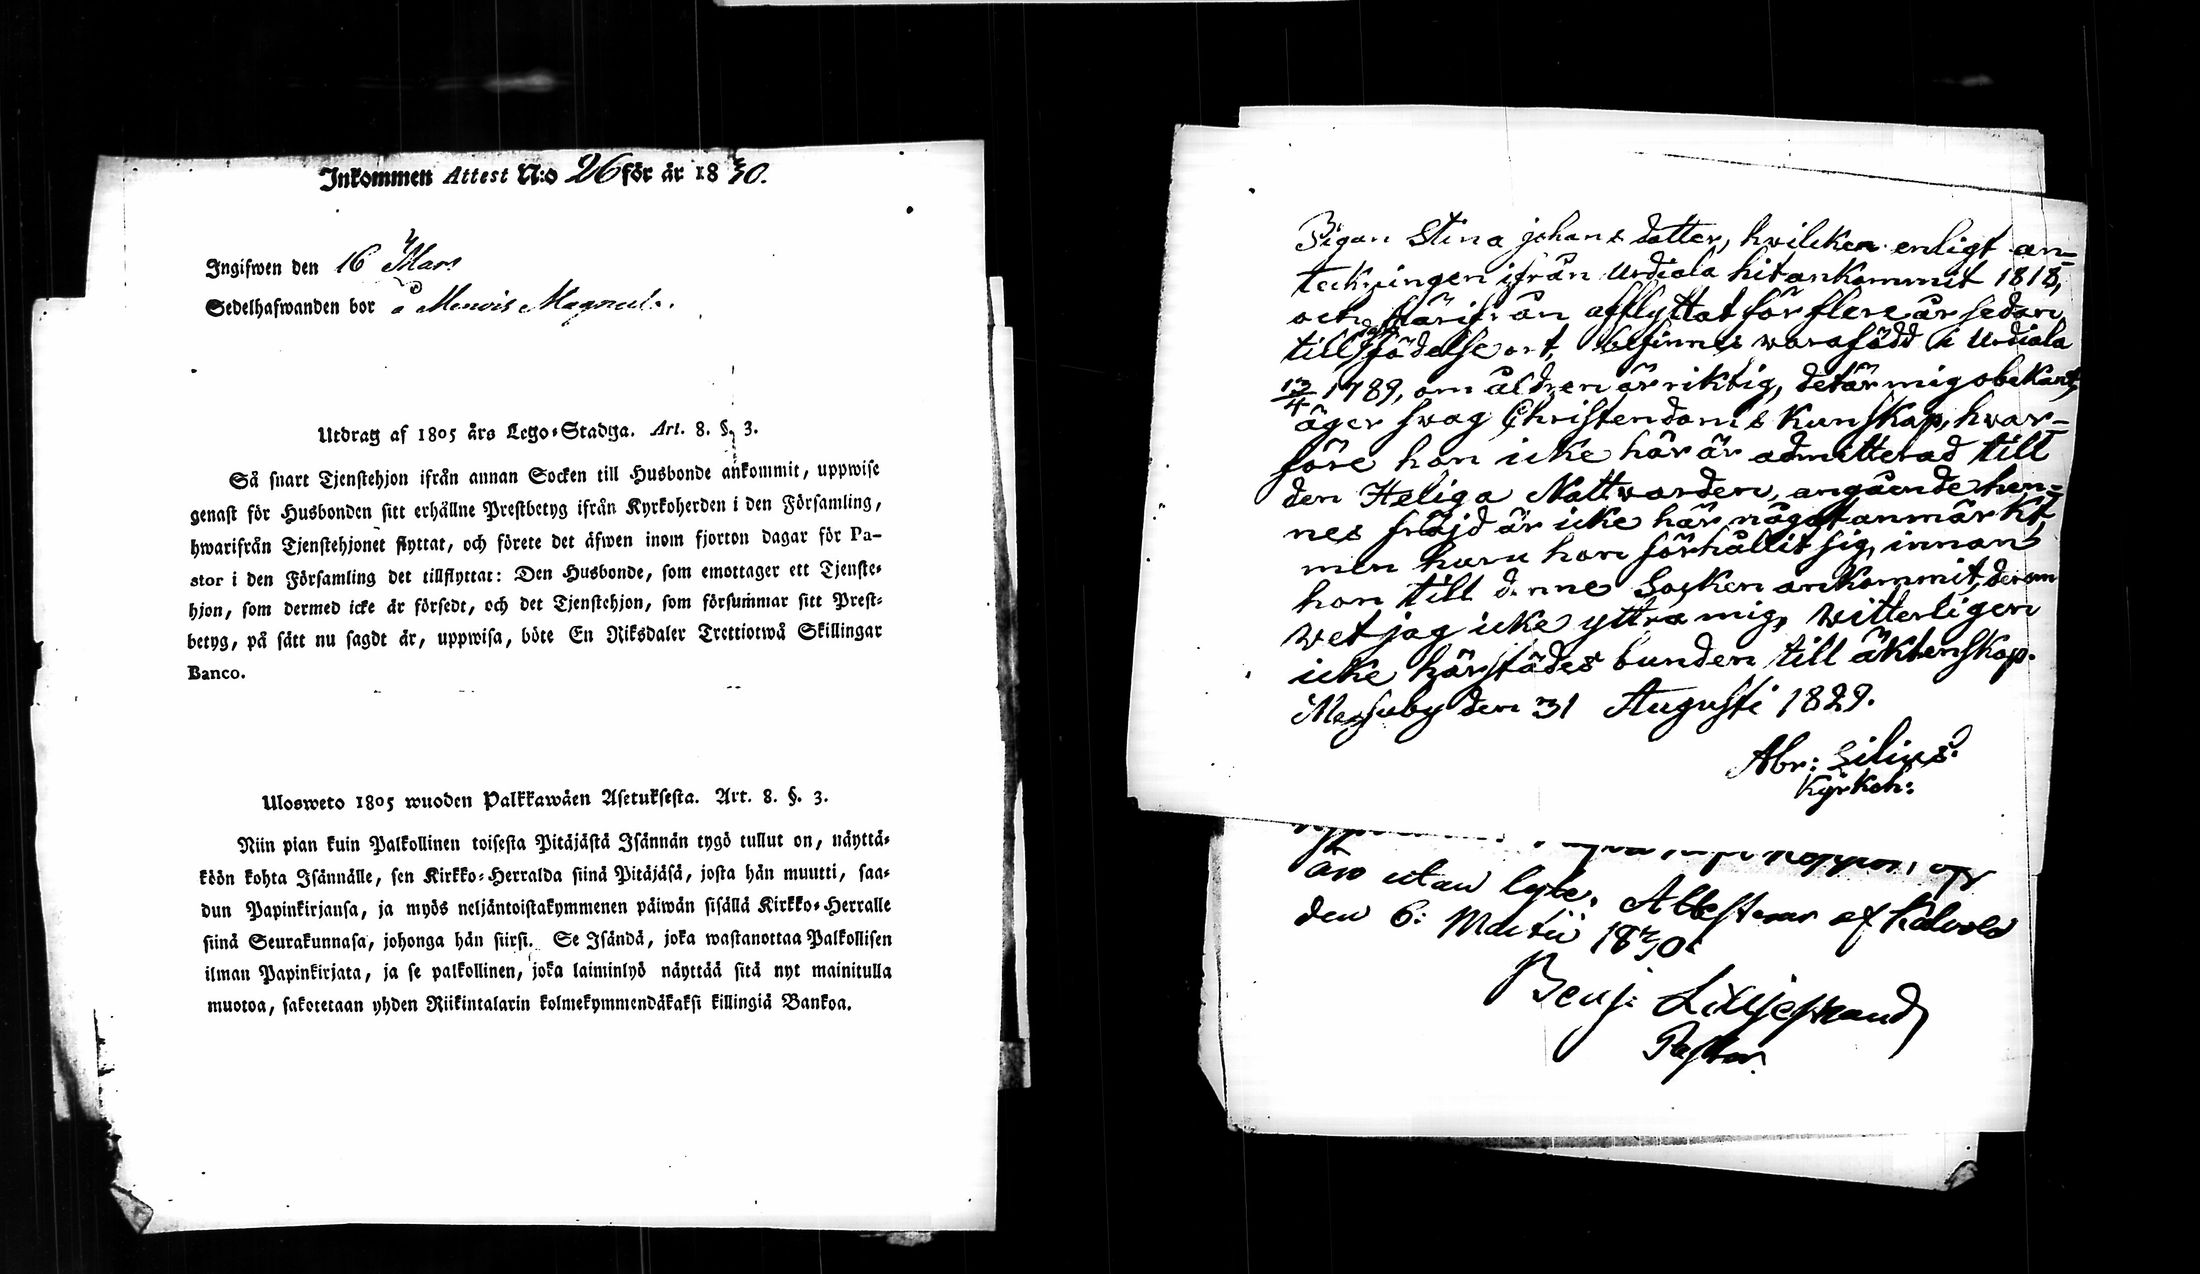 Inkommen Attest N:o 26 för år 1830.
Ingifwen den 16 Mars
Sedelhafwanden bor å
Utdrag af 1805 års Lego-Stadga. Art. 8. §. 3.
Så snart Tjenstehjon ifrån annan Socken till Husbonde ankommit, uppwise
genast för Husbonden sitt erhållne Prestbetyg ifrån Kyrkoherden i den Församling,
hwarifrån Tjenstehjonet flyttat, och förete det äfwen inom fjorton dagar för Pa-
stor i den Församling det tillflyttat: Den Husbonde, som emottager ett Tjenste-
hjon, som dermed icke är försedt, och det Tjenstehjon, som försummar sitt Prest-
betyg, på sätt nu sagdt är, uppwisa, böte En Riksdaler Trettiotwå Skillingar
Banco.
Ulosweto 1805 wuoden Palkkawäen Asetuksesta. Art. 8. §. 3.
Niin pian kuin Palkollinen toisesta Pitäjästä Isännän tygö tullut on, näyttä-
köön kohta Isännälle, sen Kirkko-Herralda siinä Pitäjäsä, josta hän muutti, saa-
dun Papinkirjansa, ja myös neljäntoistakymmenen päiwän sisällä Kirkko-Herralle
siinä Seurakunnasa, johonga hän siirsi. Se Isändä, joka wastanottaa Palkollisen
ilman Papinkirjata, ja se palkollinen, joka laiminlyö näyttää sitä nyt mainitulla
muotoa, sakotetaan yhden Riikintalarin kolmekymmendäkaksi killingiä Bankoa.
Pigan Stina Johans dotter, hwilken enligt an=
teckningen ifrån Urdiala hitankommit 1818,
och härifrån afflyttat för flere år sedan
till födelse ort, befinnes wara född i Urdiala
13/4 1789, om åldren är riktig, det är mig obekant,
äger swag Christendoms kunskap, hwar=
före hon icke här är admitterad till
den Heliga Nattwarden, angående hen=
nes fräjd är icke här något anmärkt,
men huru hon förhållit sig, innan
hon till denne Socken ankommit, derom
wet jag icke yttra mig, witterligen
icke härstädes bunden till äktenskap.
Messuby den 31 Augusti 1829.
Abr: Silius.
Kyrkoh:
än utan lyte. Attesterar af Kalvola
den 6: Martii 1830.
Benj: Lilljestrand
Pastor.